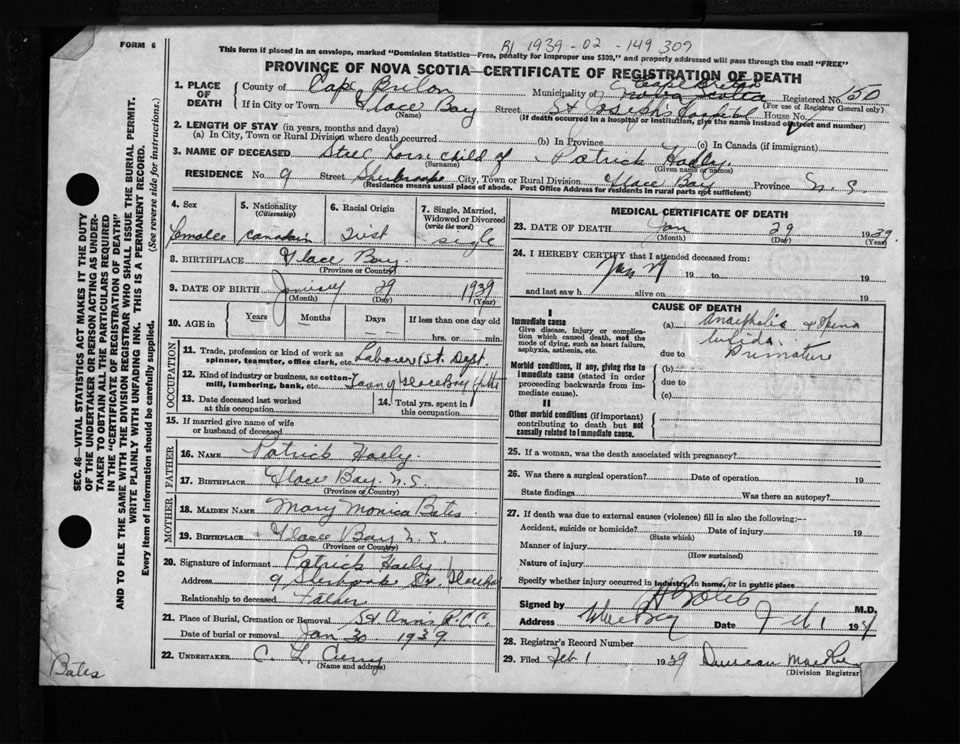 FORM 6
R1 1939-02-149 307
This form if placed in an envelope, marked "Dominion Statistics—Free, penalty for improper use $300," and properly addressed will pass through the mail "FREE"
PROVINCE OF NOVA SCOTIA—CERTIFICATE OF REGISTRATION OF DEATH
1. PLACE OF DEATH
County of Cape Breton Municipality of Cape Breton Nova Scotia Registered No. 150
(For use of Registrar General only)
If in City or Town Glace Bay Street St Joseph's Hospital House No.
(Name) (If death occurred in a hospital or institution, give the name instead of street and number)
2. LENGTH OF STAY (in years, months and days)
(a) In City, Town or Rural Division where death occurred (b) In Province (c) In Canada (if immigrant)
3. NAME OF DECEASED Still born child of Patrick Haely.
(Surname) (Given name or names)
RESIDENCE No. 9 Street Sherbrooke City, Town or Rural Division Glace Bay Province N. S.
(Residence means usual place of abode. Post Office Address for residents in rural parts not sufficient)
4. Sex 5. Nationality (Citizenship) 6. Racial Origin 7. Single, Married, Widowed or Divorced (write the word)
Femalee Canadain Irish single
8. BIRTHPLACE Glace Bay.
(Province or Country)
9. DATE OF BIRTH January 29 1939
(Month) (Day) (Year)
10. AGE in Years Months Days If less than one day old
hrs. or min.
OCCUPATION
11. Trade, profession or kind of work as spinner, teamster, office clerk, etc. Labourer St. Dept.
12. Kind of industry or business, as cotton-mill, lumbering, bank, etc. Town of Glace Bay
13. Date deceased last worked at this occupation
14. Total yrs. spent in this occupation
15. If married give name of wife or husband of deceased
FATHER
16. NAME Patrick Haely.
17. BIRTHPLACE Glace Bay. N. S.
(Province or Country)
MOTHER
18. MAIDEN NAME Mary Monica Bates
19. BIRTHPLACE Glace Bay N. S.
(Province or Country)
20. Signature of informant Patrick Haely
Address 9 Sherbrooke St. Glace Bay
Relationship to deceased Father
21. Place of Burial, Cremation or Removal St. Anns R.C.C.
Date of burial or removal Jan 30 1939
22. UNDERTAKER C. L. Curry
(Name and address)
MEDICAL CERTIFICATE OF DEATH
23. DATE OF DEATH Jan 29 1939.
(Month) (Day) (Year)
24. I HEREBY CERTIFY that I attended deceased from:
Jan 29 19 to 19
and last saw h alive on 19
CAUSE OF DEATH
I
Immediate cause
Give disease, injury or complication which caused death, not the mode of dying, such as heart failure, asphyxia, asthenia, etc.
(a) & Spina
due to
Morbid conditions, if any, giving rise to immediate cause (stated in order proceeding backwards from immediate cause).
(b)
due to
(c)
II
Other morbid conditions (if important) contributing to death but not causally related to immediate cause.
25. If a woman, was the death associated with pregnancy?
26. Was there a surgical operation? Date of operation 19
State findings Was there an autopsy?
27. If death was due to external causes (violence) fill in also the following:—
Accident, suicide or homicide? Date of injury 19
(State which)
Manner of injury
(How sustained)
Nature of injury
Specify whether injury occurred in industry, in home, or in public place
Signed by M.D.
Address Glace Bay Date Feb 1 19
28. Registrar's Record Number
29. Filed Feb 1 1939 Duncan
(Division Registrar)
SEC. 46—VITAL STATISTICS ACT MAKES IT THE DUTY
OF THE UNDERTAKER OR PERSON ACTING AS UNDER-
TAKER TO OBTAIN ALL THE PARTICULARS REQUIRED
IN THE "CERTIFICATE OF REGISTRATION OF DEATH"
AND TO FILE THE SAME WITH THE DIVISION REGISTRAR WHO SHALL ISSUE THE BURIAL PERMIT.
WRITE PLAINLY WITH UNFADING INK. THIS IS A PERMANENT RECORD.
Every item of information should be carefully supplied. (See reverse side for instructions.)
Bates